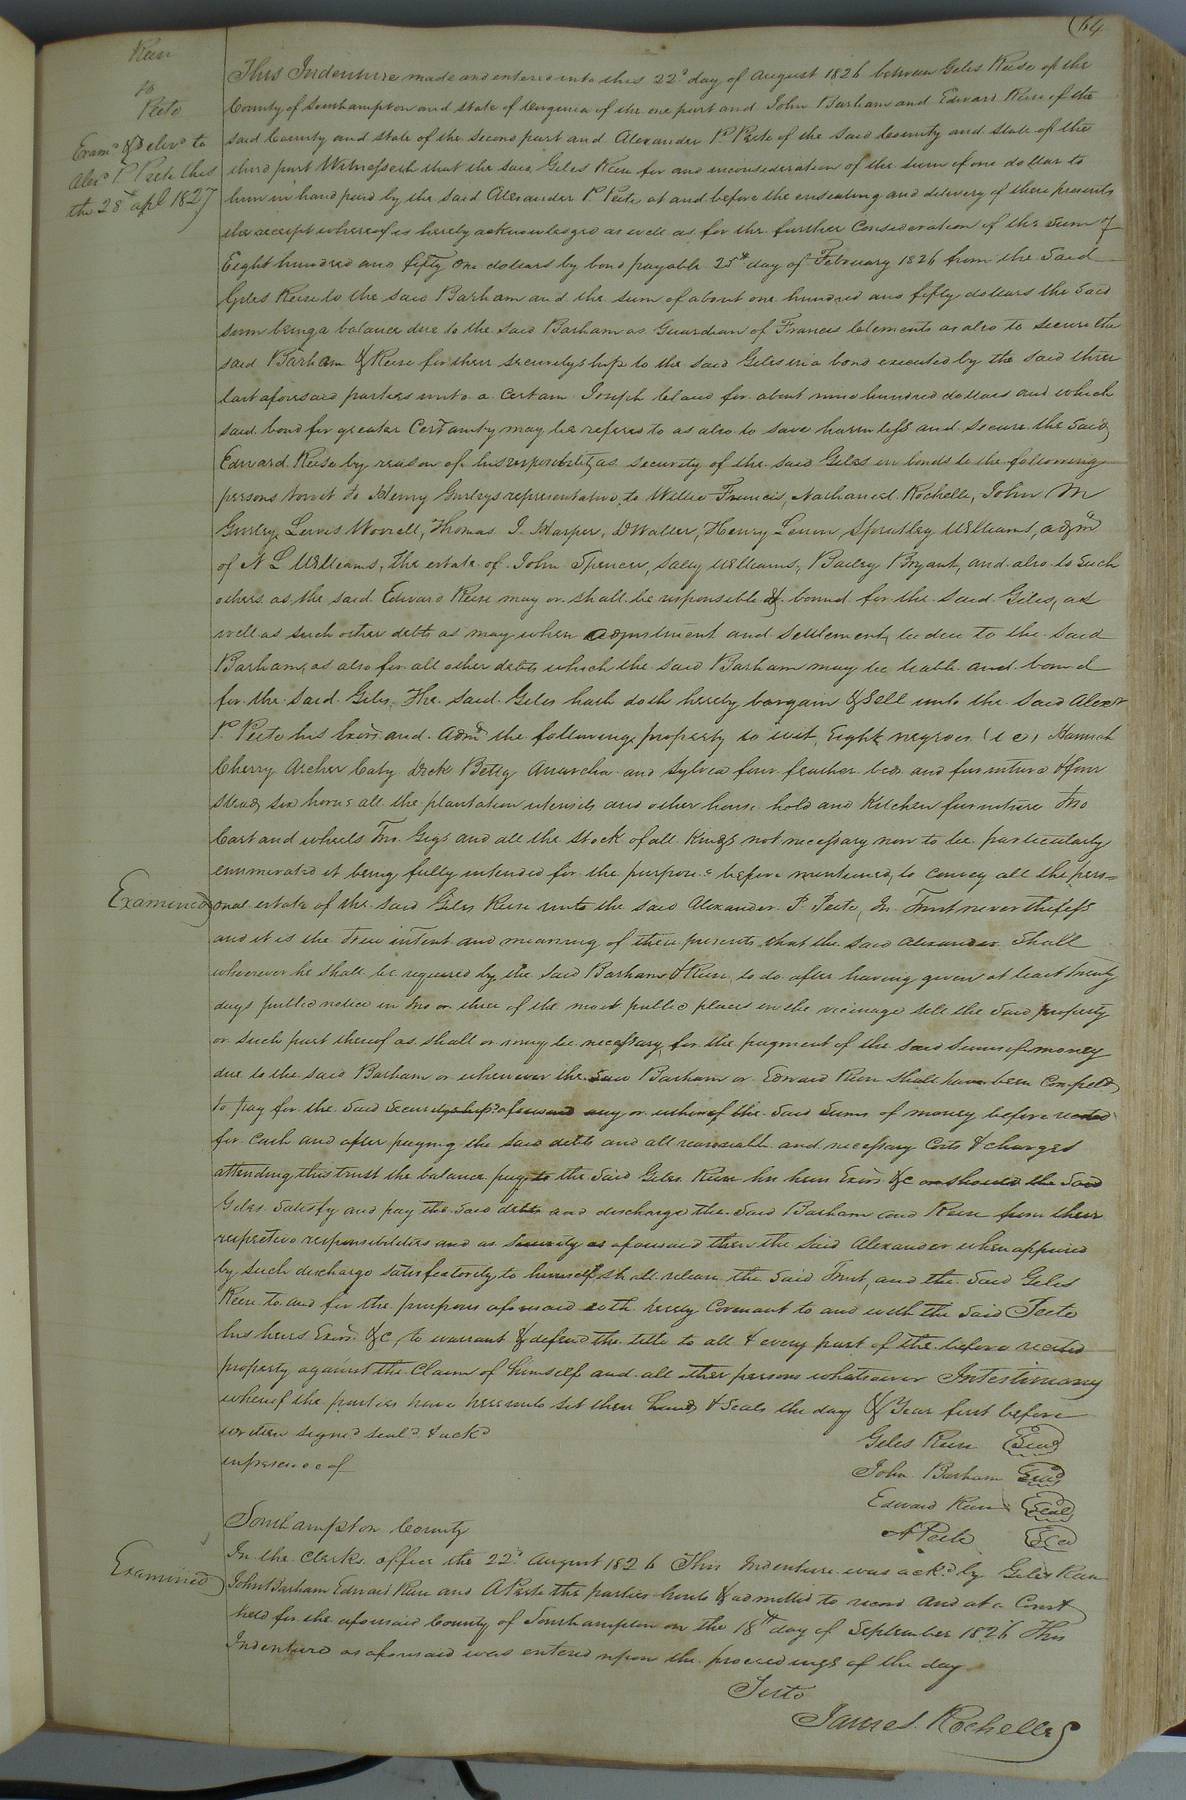 (64
Reese
to
Peete
Exam.d & deliv.d to
Alex.r P. Peete this
the 28th apl 1827
This Indenture made and entered into this 22d day of August 1826 between Giles Reese of the
County of Southampton and state of Virginia of the one part and John Barham and Edward Reese of the
said County and state of the second part and Alexander P. Peete of the said County and state of the
third part Witnesseth that the said Giles Reese for and in consideration of the sum of one dollar to
him in hand paid by the said Alexander P. Peete at and before the ensealing and delivery of these presents
the receipt whereof is hereby acknowledged as well as for the further Consideration of the sum of
Eight hundred and fifty one dollars by bond payable 25th day of February 1826 from the said
Giles Reese to the said Barham and the sum of about one hundred and fifty dollars the said
sum being a balance due to the said Barham as Guardian of Francis Clements as also to secure the
said Barham & Reese for their securityship to the said Giles in a bond executed by the said three
last aforesaid parties unto a Certain Joseph Cland for about nine hundred dollars and which
said bond for greater Certainty may be refered to as also to save harmless and secure the said
Edward Reese by reason of his responsibility as security of the said Giles in bonds to the following
persons towit to Henry Gurleys representative, to Willie Francis, Nathaniel Rochelle, John M
Gurley, Lewis Worrell, Thomas J. Harper, D Waller, Henry Lenow Spratley Williams, adm.r
of N L Williams, the estate of John Spencer, Sally Williams, Bailey Bryant, and also to such
others as the said Edward Reese may or shall be responsible & bound for the said Giles, as
well as such other debts as may when adjustment and settlement, be due to the said
Barham, as also for all other debts which the said Barham may be liable and bound
for the said Giles, The said Giles hath doth hereby bargain & sell unto the said Alex.r
P. Peete his Exors and Admr the following property to wit, Eight negroes (i e) Hannah
Cherry Archer Caty Dick Betty Anarcha and Sylvea four feather beds and furniture & four
steads, six horses all the plantation utensils, and other house hold and Kitchen furniture two
Cart and wheels two Gigs and all the stock of all kinds not necessary now to be particularly
enumerated it being fully intended for the purposes before mentioned, to convey all the pers=
Examined
onal estate of the said Giles Reese unto the said Alexander P. Peete, In Trust nevertheless
and it is the true intent and meaning of these presents that the said Alexander shall
whenever he shall be required by the said Barham & Reese, to do after having given at least twenty
days public notice in two or three of the most public places in the vicinage sell the said property
or such part thereof as shall or may be necessary, for the payment of the said sums of money
due to the said Barham or whenever the said Barham or Edward Reese shall have been Compeld
to pay for the said securityship aforesaid any or either of the said sums of money before recited
for Cash and after paying the said debts and all reasonable and necessary Costs & charges
attending this trust the balance pay to the said Giles Reese his heirs Exors &c or should the said
Giles satisfy and pay the said debts and discharge the said Barham and Reese from their
respective responsibilities and as security as aforesaid then the said Alexander when apprised
by such discharge satisfactorily to himself shall release the said Trust, and the said Giles
Reese to and for the purposes aforesaid doth hereby Covenant to and with the said Peete
his heirs Exors &c, to warrant & defend the title to all & every part of the before recited
property against the Claim of himself and all other persons whatsoever In testimony
whereof the parties have hereunto set their hands & seals the day & Year first before
written sign.d seal.d & ack.d
in presence of
Giles Reese Seal
John Barham Seal
Edward Reese Seal
A Peete Seal
Southampton County
Examined
In the Clerks office the 22d August 1826 This Indenture was ack.d by Giles Reese
John Barham Edward Reese and A Peete the parties hereto & admitted to record And at a Court
held for the aforesaid County of Southampton on the 18th day of September 1826 This
Indenture as aforesaid was entered upon the proceedings of the day
Teste
James Rochelle